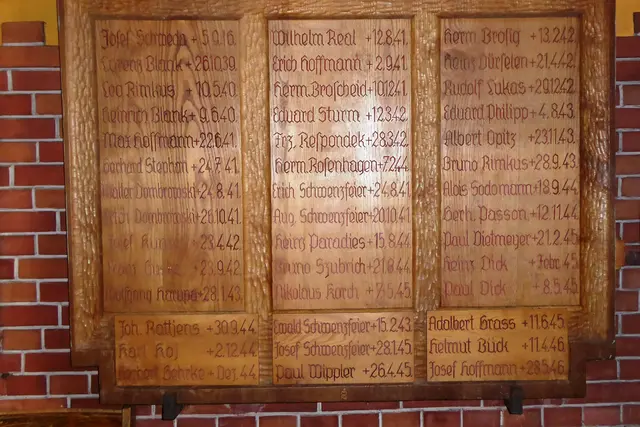 Josef Schmedn +5.9.16.
Lorenz Blank +26.10.39.
Leo Rimkus +10.5.40.
Heinrich Blank +9.6.40.
Max Hoffmann +22.6.41.
Gerhard Stephan +24.7.41.
Walter Dombrowski +24.8.41.
Dombrowski +26.10.41.
Josef +23.4.42.
+23.9.42.
Wolfgang +28.1.43.
Joh. Rattjens +30.9.44.
Karl Koj +2.12.44.
Herbert Gehrke + Dez. 44.
Wilhelm Real +12.8.41.
Erich Hoffmann +2.9.41.
Herm. Broscheid +10.12.41.
Eduard Sturm +12.3.42.
Frz. Respondek +28.3.42.
Herm. Rosenhagen +7.2.44.
Erich Schwenzfeier +24.8.41.
Aug. Schwenzfeier +20.10.41.
Heinz Paradies +15.8.44.
Bruno Szubrich +21.8.44.
Nikolaus Karch +7.5.45.
Ewald Schwenzfeier +15.2.43.
Josef Schwenzfeier +28.1.45.
Paul Wippler +26.4.45.
Herm. Brosig +13.2.42.
Heinz Dürselen +21.4.42.
Rudolf Lukas +29.12.42.
Eduard Philipp +4.8.43.
Albert Opitz +23.11.43.
Bruno Rimkus +28.9.43.
Alois Sodomann +18.9.44.
Gerh. Passon +12.11.44.
Paul Dietmeyer +21.2.45.
Heinz Dick +Febr. 45.
Paul Dick +8.5.45.
Adalbert Grass +11.6.45.
Helmut Bück +11.4.46.
Josef Hoffmann +28.5.46.